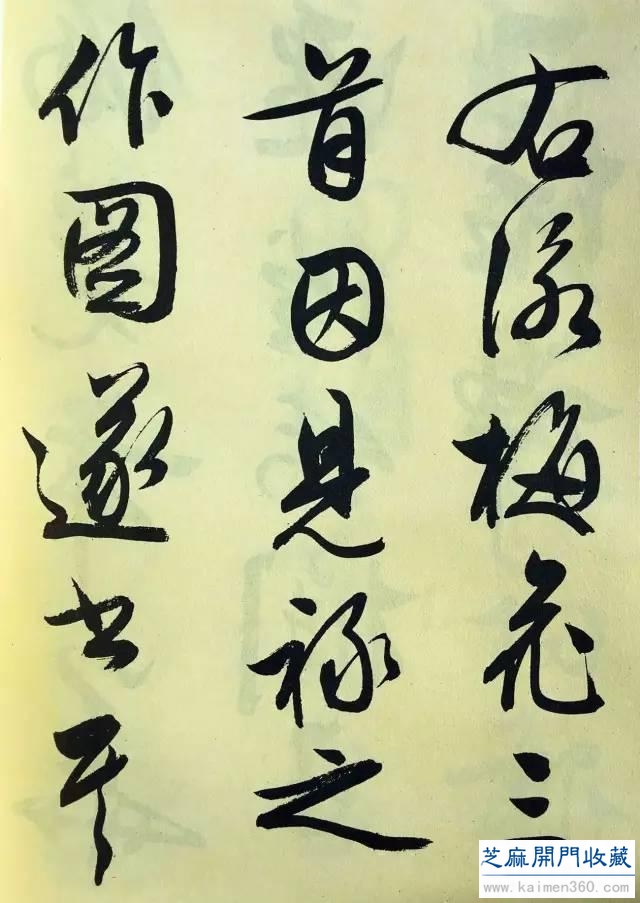 右詠梅花三
首因見祿之
作圖遂書其
芝麻開門收藏
www.kaimen360.com